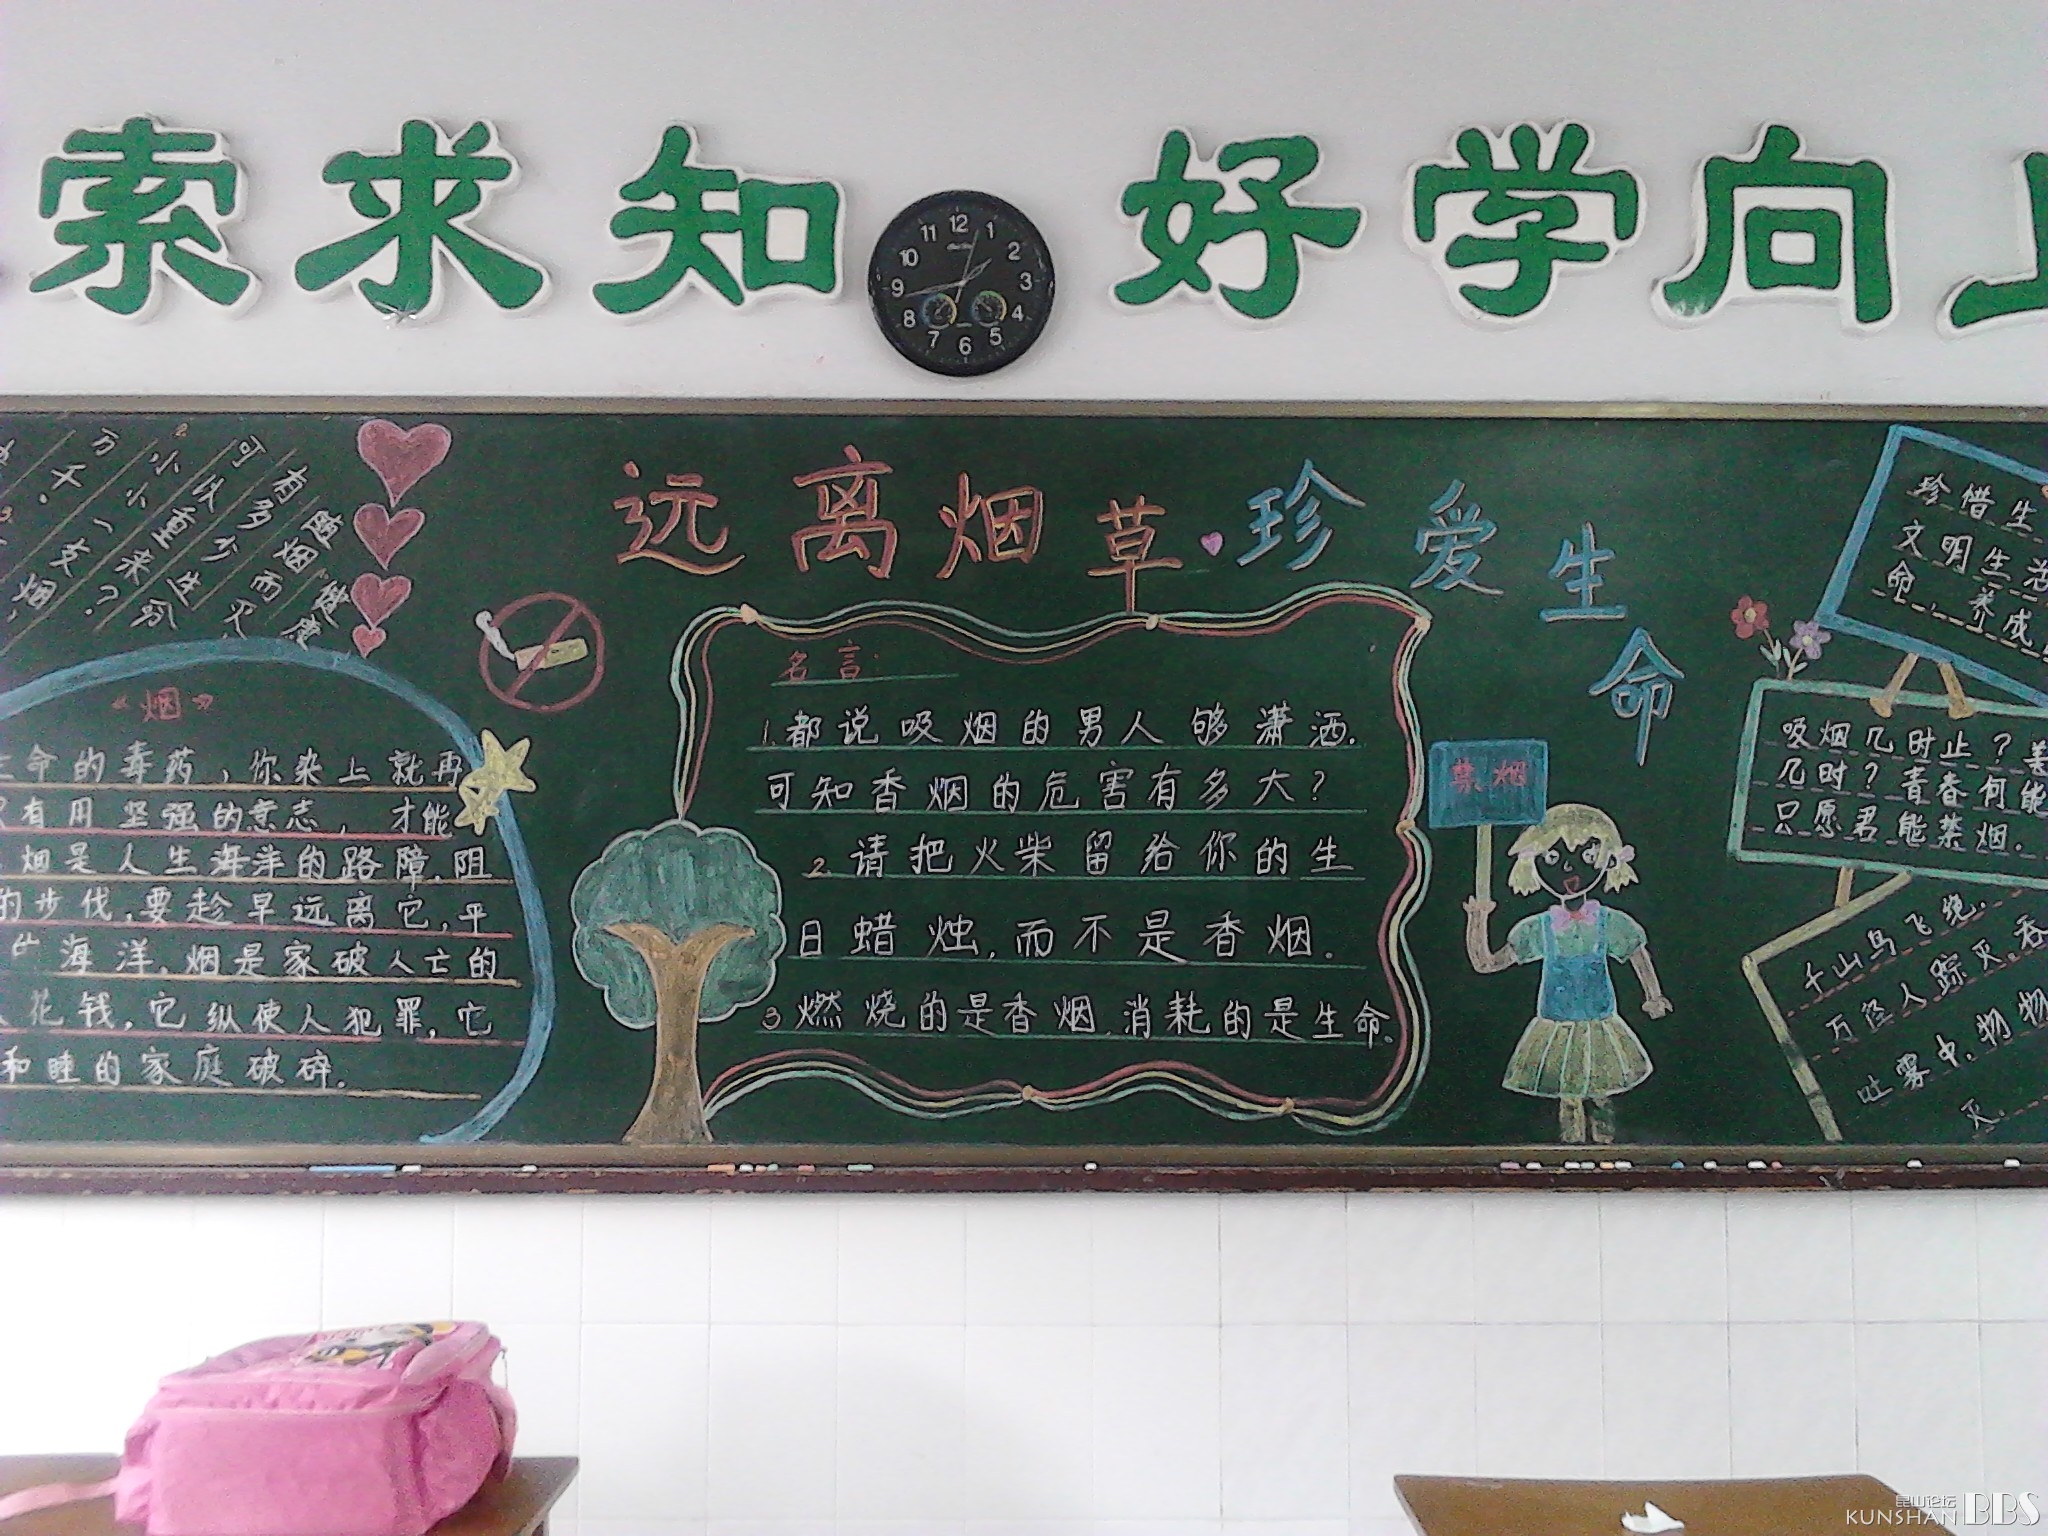 索求知 好学向上
12
1
2
3
4
5
6
7
8
9
10
11
远离烟草·珍爱生命
万千
2.小小一支烟
可以重来?
有多少生命
3.
《烟》
生命的毒药,你染上就再
只有用坚强的意志,才能
烟是人生海洋的路障.阻
的步伐,要趁早远离它,平
的海洋.烟是家破人亡的
花钱,它纵使人犯罪,它
和睦的家庭破碎.
名言:
1.都说吸烟的男人够潇洒.
可知香烟的危害有多大?
2.请把火柴留给你的生
日蜡烛,而不是香烟.
3燃烧的是香烟.消耗的是生命.
禁烟
珍惜生
文明生活
命、养成
吸烟几时止?美
几时?青春何能
只愿君能禁烟.
千山鸟飞绝.
万径人踪灭.吞
吐雾中.物物
灭.
昆山论坛
KUNSHAN BBS